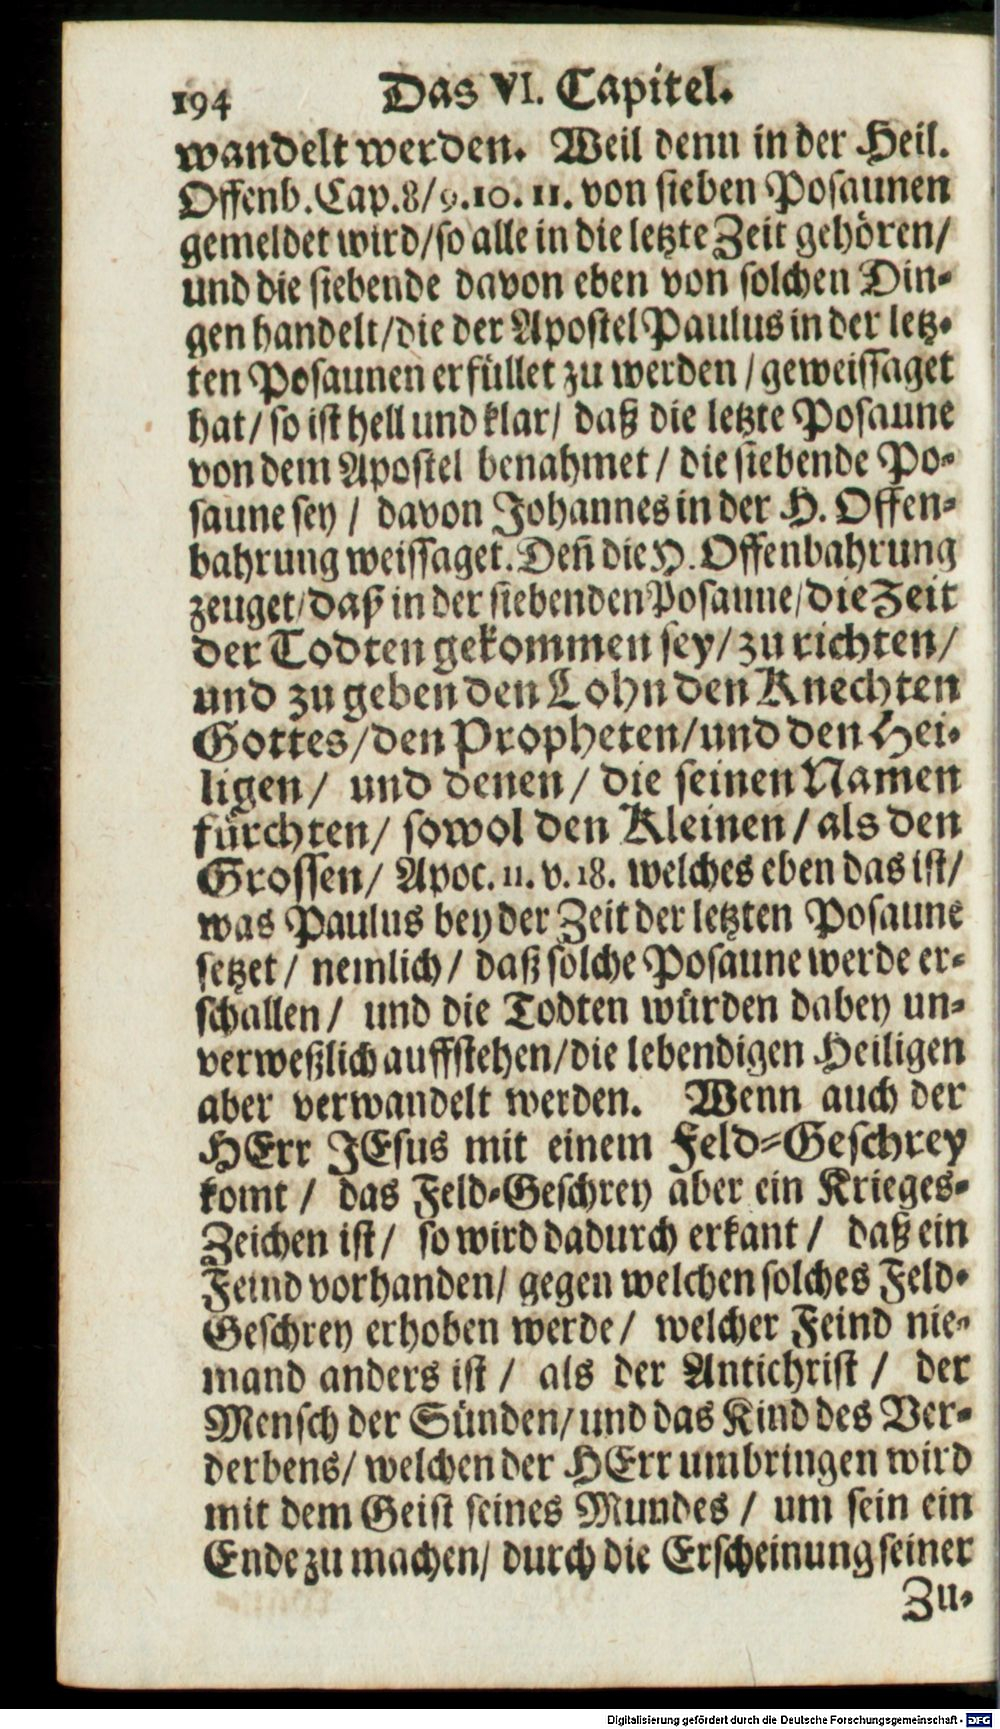 194 Das VI. Capitel.
wandelt werden. Weil denn in der Heil.
Offenb. Cap. 8/9.10. 11. von sieben Posaunen
gemeldet wird/so alle in die letzte Zeit gehören/
und die siebende davon eben von solchen Din-
gen handelt/die der Apostel Paulus in der letz-
ten Posaunen erfüllet zu werden / geweissaget
hat/ so ist hell und klar/ daß die letzte Posaune
von dem Apostel benahmet / die siebende Po-
saune sey / davon Johannes in der H. Offen-
bahrung weissaget. Deñ die H. Offenbahrung
zeuget/daß in der siebenden Posaune/die Zeit
der Todten gekommen sey/zu richten/
und zu geben den Lohn den Knechten
Gottes/den Propheten/und den Hei-
ligen/ und denen/ die seinen Namen
fürchten/ sowol den Kleinen/als den
Grossen/ Apoc. 11. v. 18. welches eben das ist/
was Paulus bey der Zeit der letzten Posaune
setzet/ nemlich/ daß solche Posaune werde er-
schallen/ und die Todten würden dabey un-
verweßlich auffstehen/die lebendigen Heiligen
aber verwandelt werden. Wenn auch der
HErr JEsus mit einem Feld-Geschrey
komt / das Feld-Geschrey aber ein Krieges-
Zeichen ist/ so wird dadurch erkant/ daß ein
Feind vorhanden/ gegen welchen solches Feld-
Geschrey erhoben werde/ welcher Feind nie-
mand anders ist / als der Antichrist / der
Mensch der Sünden/und das Kind des Ver-
derbens/ welchen der HErr umbringen wird
mit dem Geist seines Mundes / um sein ein
Ende zu machen/ durch die Erscheinung seiner
Zu-
Digitalisierung gefördert durch die Deutsche Forschungsgemeinschaft - DFG